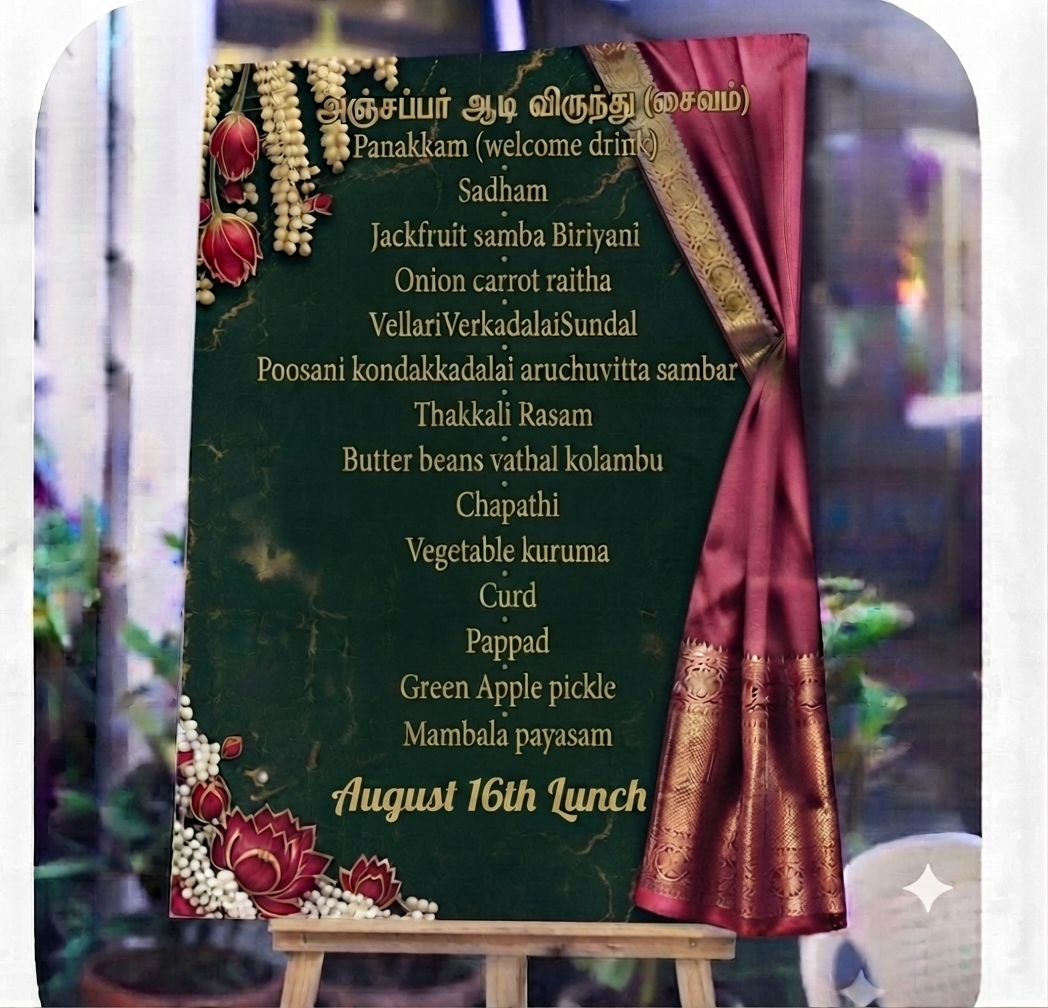 அஞ்சப்பர் ஆடி விருந்து (சைவம்)
Panakkam (welcome drink)
Sadham
Jackfruit samba Biriyani
Onion carrot raitha
VellariVerkadalaiSundal
Poosani kondakkadalai aruchuvitta sambar
Thakkali Rasam
Butter beans vathal kolambu
Chapathi
Vegetable kuruma
Curd
Pappad
Green Apple pickle
Mambala payasam
August 16th Lunch